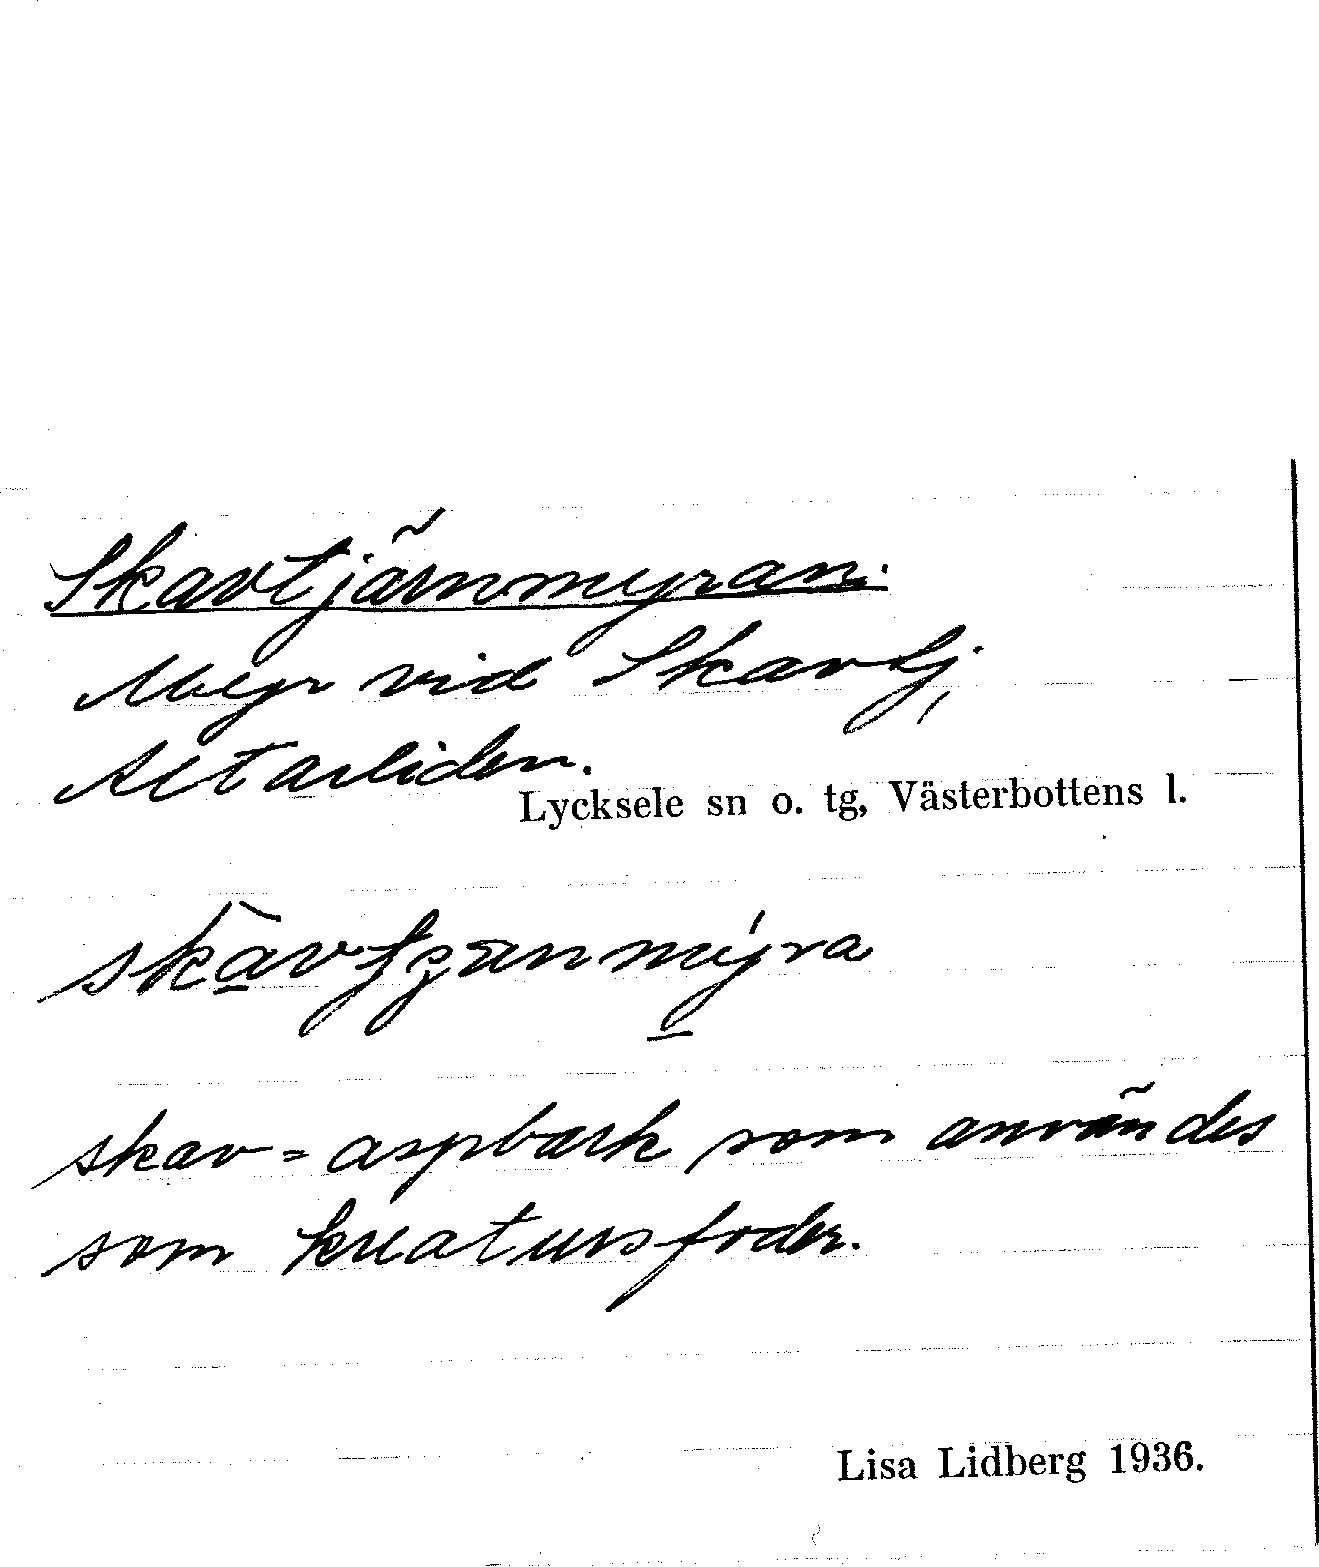 Skavtjärnmyran.
Myr vid Skavtj,
Altarliden.
Lycksele sn o. tg, Västerbottens l.
skav = aspbark som användes
som kreatursfoder.
Lisa Lidberg 1936.